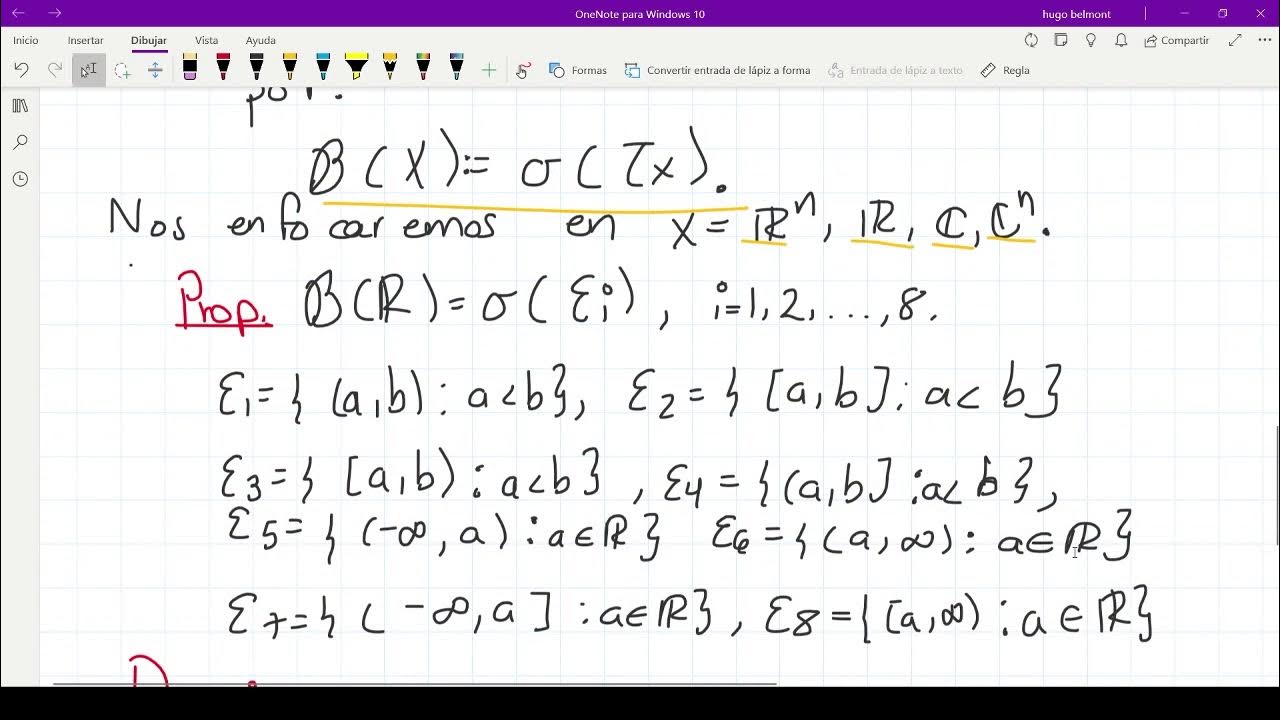 OneNote para Windows 10
hugo belmont
Inicio Insertar Dibujar Vista Ayuda
Compartir
Formas Convertir entrada de lápiz a forma Entrada de lápiz a texto Regla
por:
𝔹(X):= σ(τx).
Nos enfocaremos en X = ℝⁿ, ℝ, ℂ, ℂⁿ.
Prop. 𝔹(ℝ)= σ(Ɛi), i=1,2,...,8.
Ɛ1={(a,b): a<b}, Ɛ2={[a,b]: a<b}
Ɛ3={[a,b): a<b}, Ɛ4={(a,b]: a<b},
Ɛ5={(-∞,a): a∈ℝ} Ɛ6={(a,∞): a∈ℝ}
Ɛ7={(-∞,a]: a∈ℝ}, Ɛ8={[a,∞): a∈ℝ}